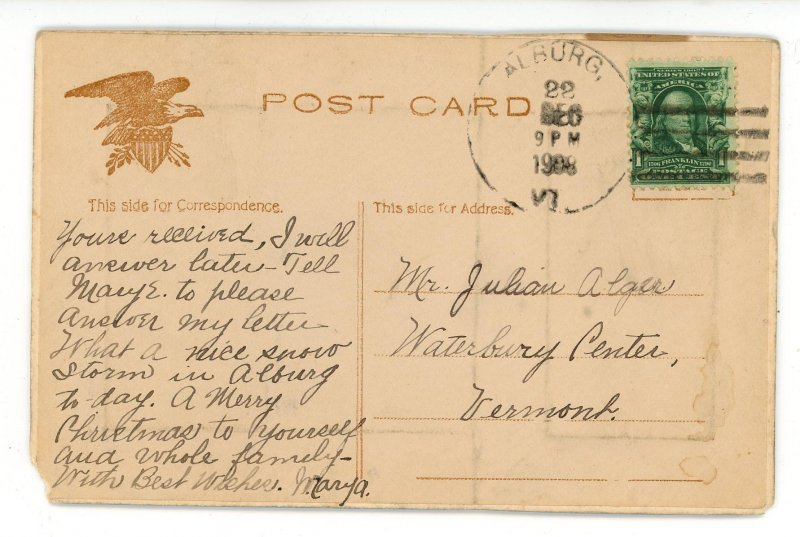 POST CARD
ALBURG,
22
DEC
9 PM
1908
VT.
SERIES 1902
UNITED STATES OF
AMERICA
1706 FRANKLIN 1790
1
POSTAGE
This side for Correspondence.
This side for Address.
Yours received, I will
answer later - Tell
Mary E. to please
answer my letter
What a nice snow
storm in Alburg
to-day. A Merry
Christmas to Yourself
and whole family -
With Best Wishes. Mary A.
Mr. Julian Alger
Waterbury Center,
Vermont.